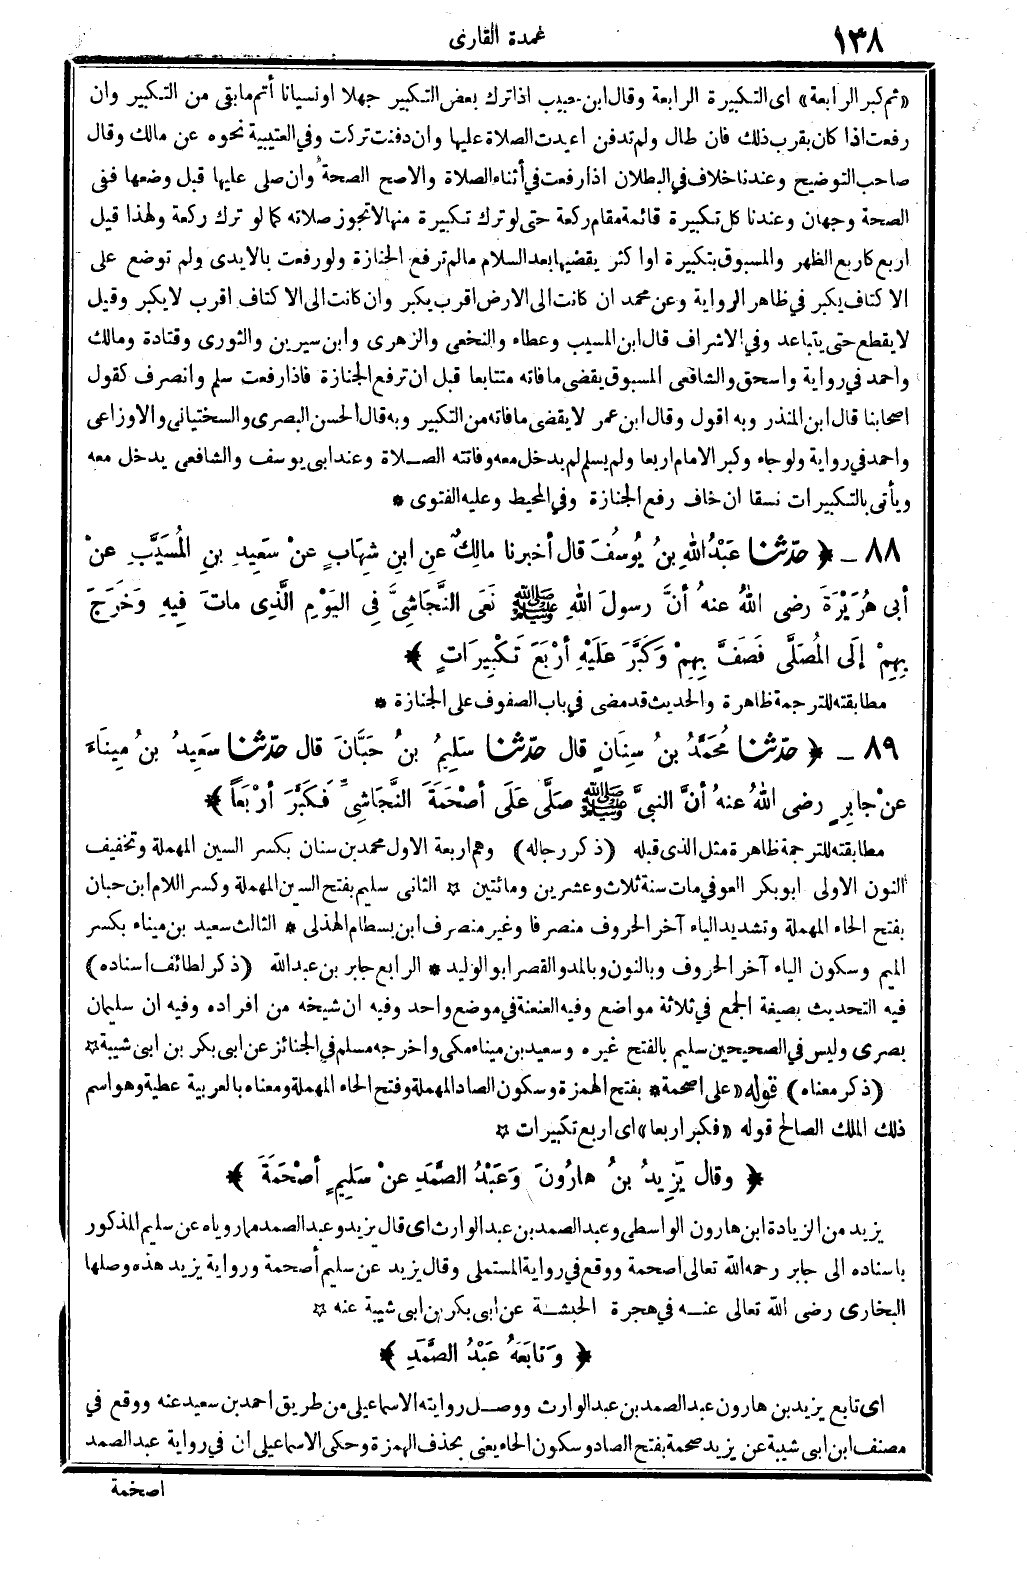 ١٣٨
عمدة القارى
«ثم كبر الرابعة» اى التكبيرة الرابعة وقال ابن حبيب اذا ترك بعض التكبير جهلا او نسيانا أتم ما بقى من التكبير وان
رفعت اذا كان بقرب ذلك فان طال ولم تدفن اعيدت الصلاة عليها وان دفنت تركت وفى العتيبية نحوه عن مالك وقال
صاحب التوضيح وعندنا خلاف فى البطلان اذا رفعت فى أثناء الصلاة والاصح الصحة وان صلى عليها قبل وضعها ففى
الصحة وجهان وعندنا كل تكبيرة قائمة مقام ركعة حتى لو ترك تكبيرة منها لا تجوز صلاته كما لو ترك ركعة ولهذا قيل
اربع كاربع الظهر والمسبوق بتكبيرة او اكثر يقضيها بعد السلام مالم ترفع الجنازة ولو رفعت بالايدى ولم توضع على
الاكتاف يكبر فى ظاهر الرواية وعن محمد ان كانت الى الارض اقرب يكبر وان كانت الى الاكتاف اقرب لا يكبر وقيل
لا يقطع حتى يتباعد وفى الاشراف قال ابن المسيب وعطاء والنخعى والزهرى وابن سيرين والثورى وقتادة ومالك
واحمد فى رواية واسحق والشافعى المسبوق يقضى ما فاته متتابعا قبل ان ترفع الجنازة فاذا رفعت سلم وانصرف كقول
اصحابنا قال ابن المنذر وبه اقول وقال ابن عمر لا يقضى ما فاته من التكبير وبه قال الحسن البصرى والسختيانى والاوزاعى
واحمد فى رواية ولو جاء وكبر الامام اربعا ولم يسلم لم يدخل معه وفاتته الصلاة وعند ابى يوسف والشافعى يدخل معه
ويأتى بالتكبيرات نسقا ان خاف رفع الجنازة وفى المحيط وعليه الفتوى *
٨٨ ـ ﴿ حدّثنا عَبْدُ اللهِ بنُ يُوسُفَ قال أخبرنا مالِكٌ عنِ ابنِ شِهَابٍ عنْ سَعِيدِ بنِ المُسَيَّبِ عنْ
أبى هُرَيْرَةَ رضى اللهُ عنهُ أنَّ رسولَ اللهِ ﷺ نَعَى النَّجَاشِيَّ فِى اليَوْمِ الَّذِى ماتَ فِيهِ وَخَرَجَ
بِهِمْ إلَى المُصَلَّى فَصَفَّ بِهِمْ وَكَبَّرَ عَلَيْهِ أرْبَعَ تَكْبِيرَاتٍ ﴾
مطابقته للترجمة ظاهرة والحديث قد مضى فى باب الصفوف على الجنازة *
٨٩ ـ ﴿ حدّثنا مُحَمَّدُ بنُ سِنَانٍ قال حدّثنا سَلِيمُ بنُ حَيَّانَ قال حدّثنا سَعِيدُ بنُ مِينَاءَ
عنْ جابِرٍ رضى اللهُ عنهُ أنَّ النبىَّ ﷺ صَلَّى عَلَى أصْحَمَةَ النَّجَاشِىِّ فَكَبَّرَ أرْبَعاً ﴾
مطابقته للترجمة ظاهرة مثل الذى قبله (ذكر رجاله) وهم اربعة الاول محمد بن سنان بكسر السين المهملة وتخفيف
النون الاولى ابو بكر العوفى مات سنة ثلاث وعشرين ومائتين ☆ الثانى سليم بفتح السين المهملة وكسر اللام ابن حبان
بفتح الحاء المهملة وتشديد الياء آخر الحروف منصرفا وغير منصرف ابن بسطام الهذلى * الثالث سعيد بن ميناء بكسر
الميم وسكون الياء آخر الحروف وبالنون وبالمد والقصر ابو الوليد * الرابع جابر بن عبد الله (ذكر لطائف اسناده)
فيه التحديث بصيغة الجمع فى ثلاثة مواضع وفيه العنعنة فى موضع واحد وفيه ان شيخه من افراده وفيه ان سليمان
بصرى وليس فى الصحيحين سليم بالفتح غيره وسعيد بن ميناء مكى واخرجه مسلم فى الجنائز عن ابى بكر بن ابى شيبة ☆
(ذكر معناه) قوله «على اصحمة* بفتح الهمزة وسكون الصاد المهملة وفتح الحاء المهملة ومعناه بالعربية عطية وهو اسم
ذلك الملك الصالح قوله «فكبر اربعا» اى اربع تكبيرات ☆
﴿ وقال يَزِيدُ بنُ هارُونَ وَعَبْدُ الصَّمَدِ عنْ سَلِيمٍ أصْحَمَةَ ﴾
يزيد من الزيادة ابن هارون الواسطى وعبد الصمد بن عبد الوارث اى قال يزيد وعبد الصمد مما روياه عن سليم المذكور
باسناده الى جابر رحمه الله تعالى اصحمة ووقع فى رواية المستملى وقال يزيد عن سليم أصحمة ورواية يزيد هذه وصلها
البخارى رضى الله تعالى عنه فى هجرة الحبشة عن ابى بكر بن ابى شيبة عنه ☆
﴿ وَتابَعَهُ عَبْدُ الصَّمَدِ ﴾
اى تابع يزيد بن هارون عبد الصمد بن عبد الوارث ووصل روايته الاسماعيلى من طريق احمد بن سعيد عنه ووقع فى
مصنف ابن ابى شيبة عن يزيد صحمة بفتح الصاد وسكون الحاء يعنى بحذف الهمزة وحكى الاسماعيلى ان فى رواية عبد الصمد
اصخمة